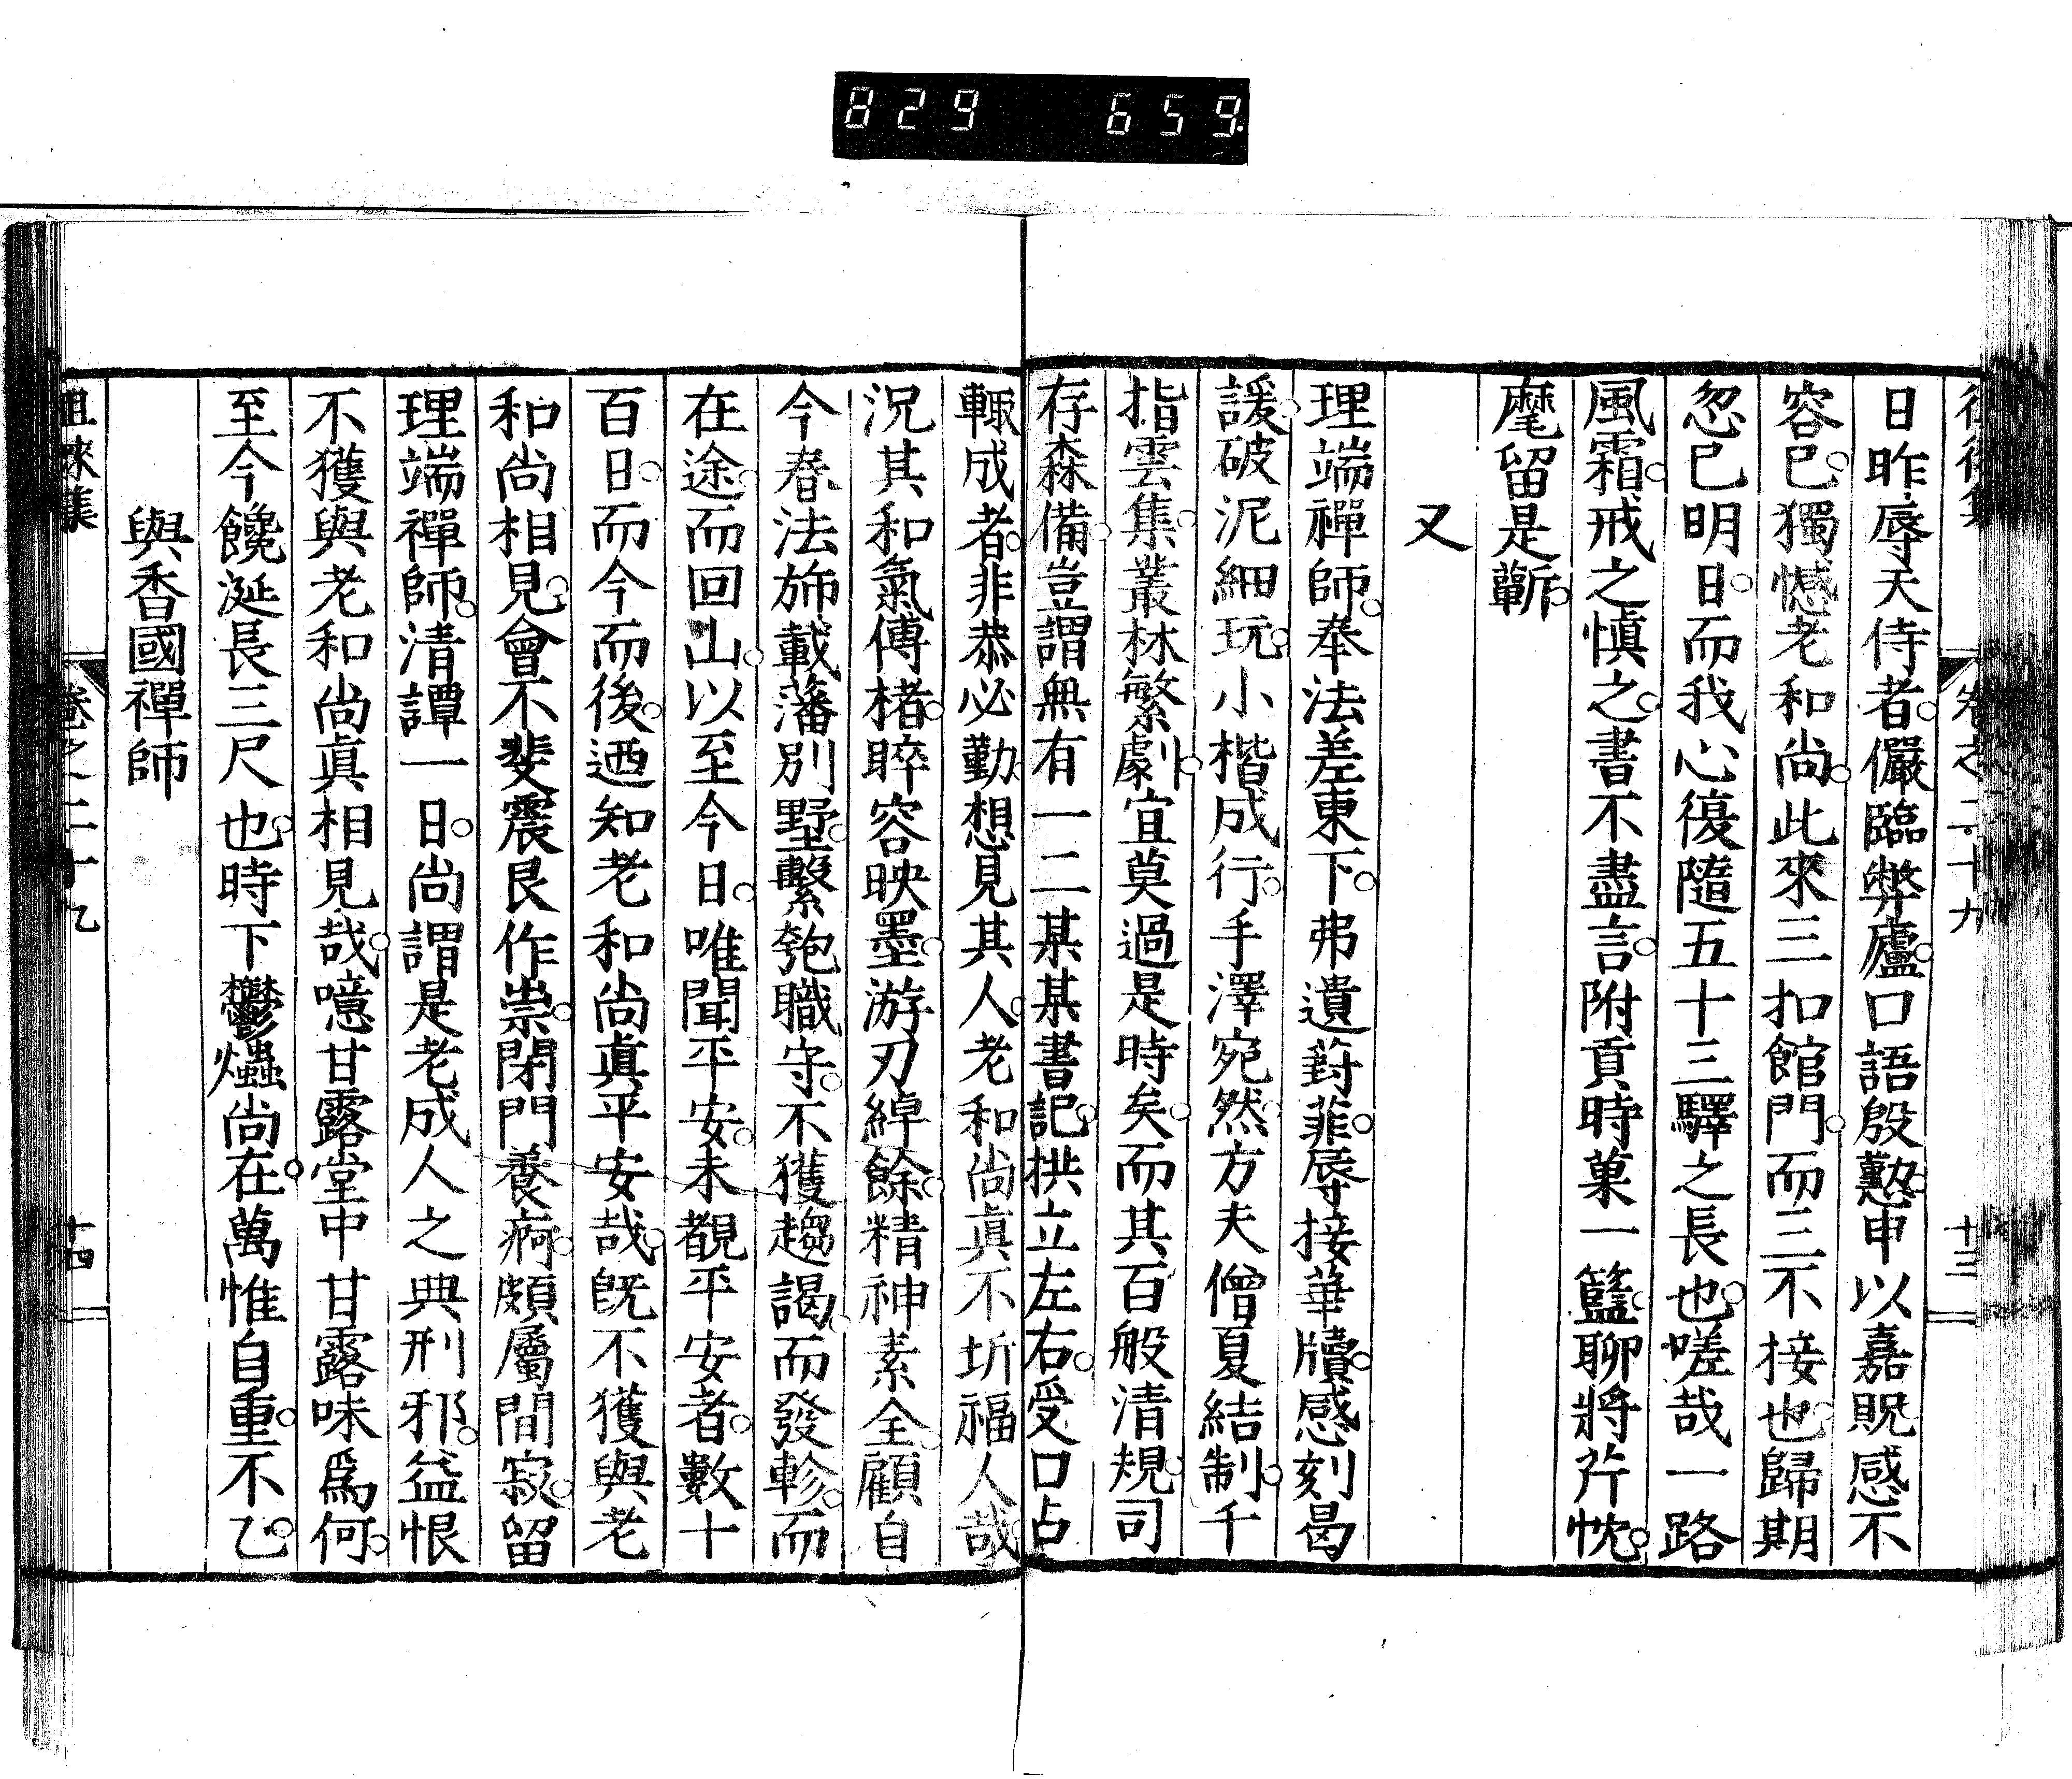 829 659.
卷之二十九 十三
日昨辱天侍者儼臨弊廬口語殷懃申以嘉貺感不
容已獨憾老和尚此來三扣館門而三不接也歸期
忽已明日而我心復隨五十三驛之長也嗟哉一路
風霜戒之愼之書不盡言附貢時菓一籃聊將芹忱
麾留是蘄
又
理端禪師奉法差東下弗遺葑菲辱接華牘感刻曷
諼破泥細玩小楷成行手澤宛然方夫僧夏結制千
指雲集叢林繁劇宜莫過是時矣而其百般清規司
存森備豈謂無有一二某某書記拱立左右受口占
輙成者非恭必勤想見其人老和尚眞不圻福人哉
況其和氣傅楮睟容映墨游刃綽餘精神素全顧自
今春法斾載藩別墅繫匏職守不獲趨謁而發軫而
在途而回山以至今日唯聞平安未覩平安者數十
百日而今而後迺知老和尚眞平安哉旣不獲與老
和尚相見會不斐震艮作祟閉門養痾頗屬閒寂留
理端禪師清譚一日尚謂是老成人之典刑邪益恨
不獲與老和尚眞相見哉噫甘露堂中甘露味爲何
至今饞涎長三尺也時下鬱爞尚在萬惟自重不乙
與香國禪師
徂徠集 卷之二十九 十四